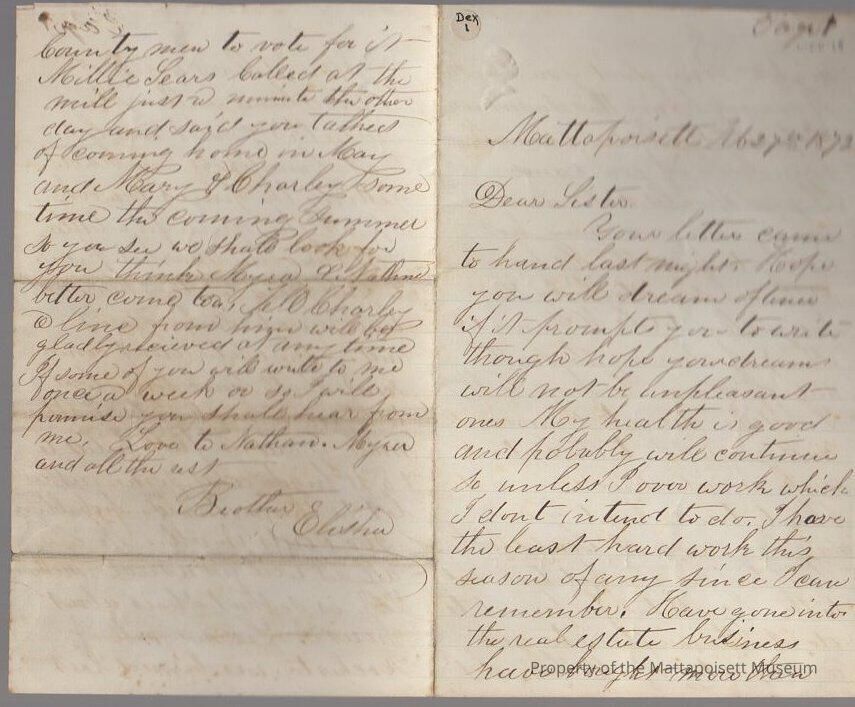 Dex
1
Mattapoisett Feb 27th 1873
Dear Sister
Your letter came
to hand last night. Hope
you will dream oftener
if it prompts you to write
though hope your dreams
will not be unpleasant
ones My health is good
and pobably will continue
so unless I over work which
I dont intend to do. I have
the least hard work this
season of any since I can
remember. Have gone into
the real estate business
have bought more than
County men to vote for it
Millie Sears Called at the
mill just a minute the other
day and said you talked
of coming home in May
and Mary & Charley some
time the coming summer
so you see we shall look for
you think Myra & Nathan
better come too.
Charley
a line from him will be
gladly recieved at any time
If some of you will write to me
once a week or so I will
promise you shall hear from
me. Love to Nathan. Myra
and all the rest
Brother
Elisha
Property of the Mattapoisett Museum